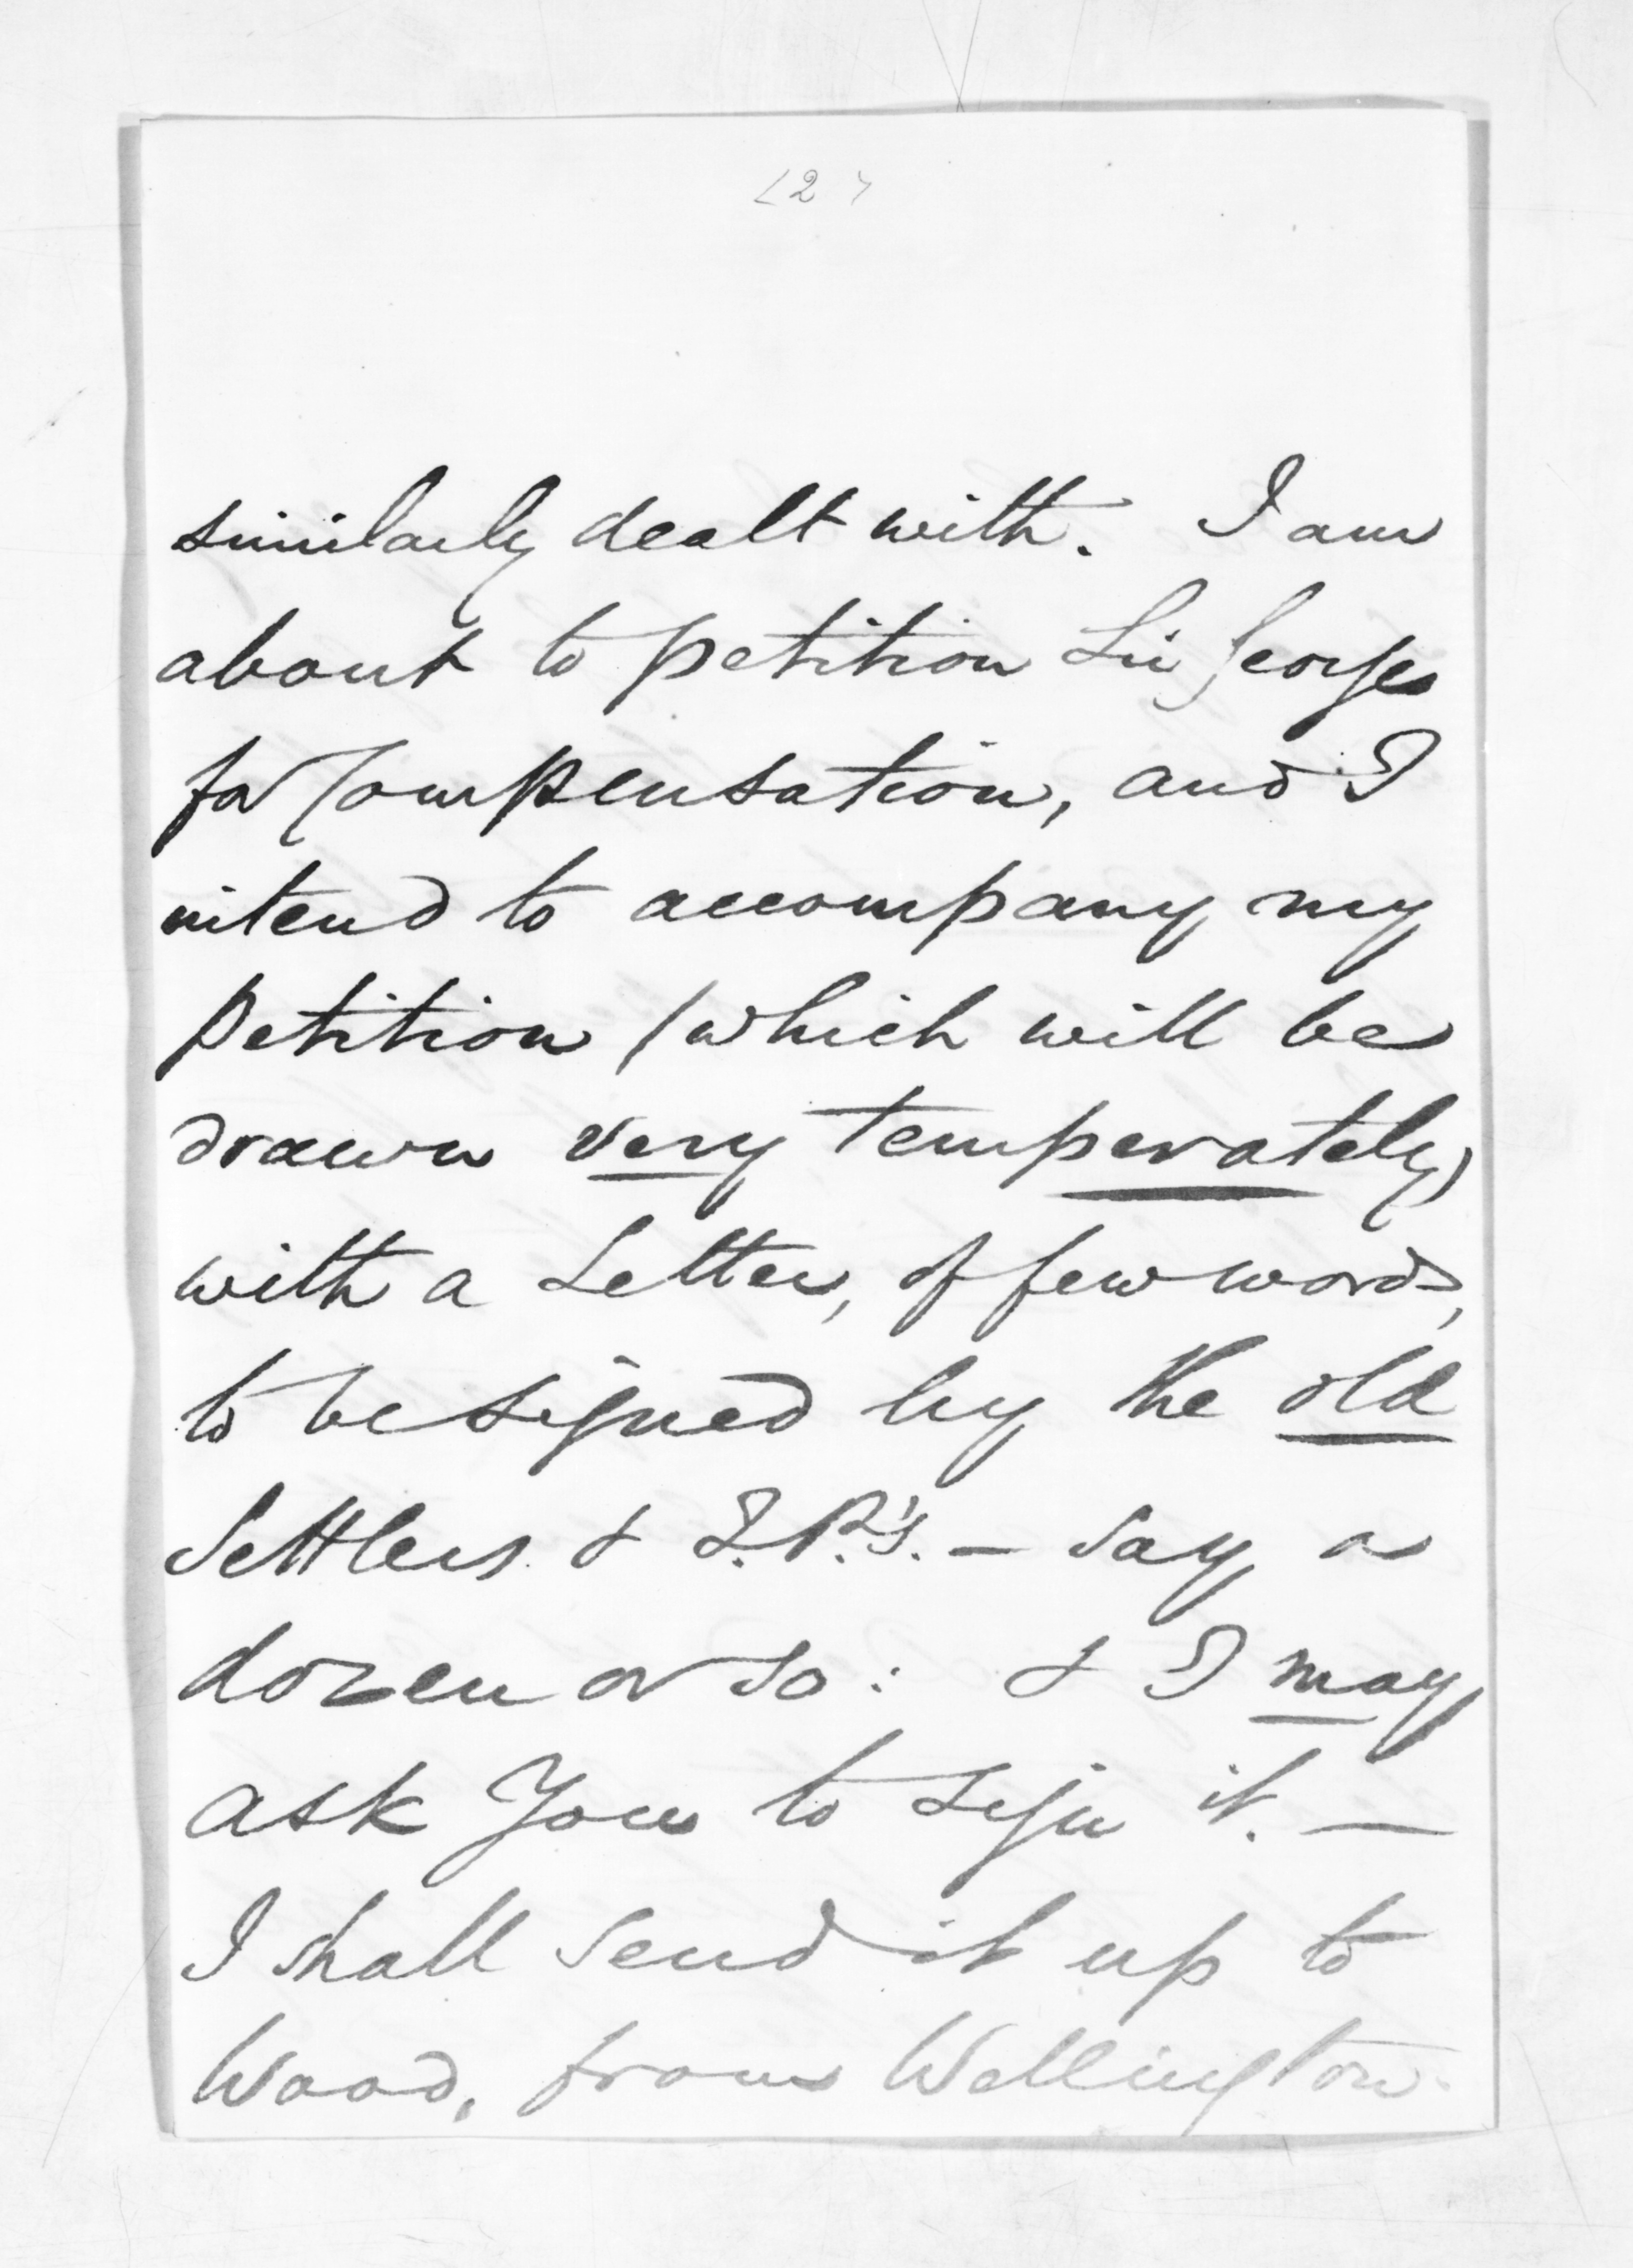 (2)
similarly dealt with. I am
about to petition Sir George
for Compensation, and I
intend to accompany my
petition (which will be
drawn very temperately)
with a Letter, of few words,
to be signed by the old
Settlers & J.P.'s. — say a
dozen or so: & I may
ask You to sign it. —
I shall send it up to
Wood, from Wellington.